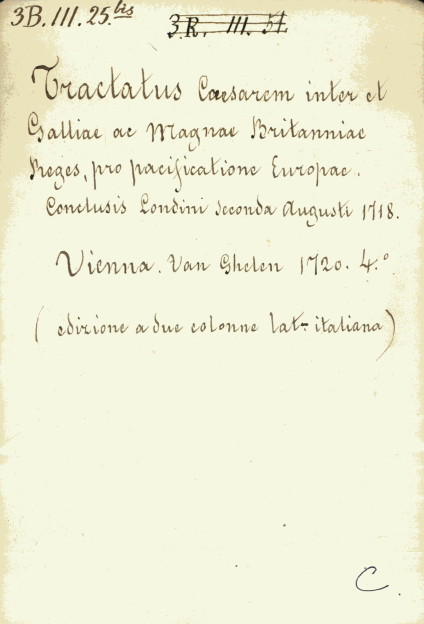 3B. III. 25.bis
3.R. III. 51.
Tractatus Caesarem inter et
Galliae ac Magnae Britanniae
Reges, pro pacificatione Europae.
Conclusis Londini secunda Augusti 1718.
Vienna. Van Ghelen 1720. 4.º
( edizione a due colonne lat- italiana )
C.